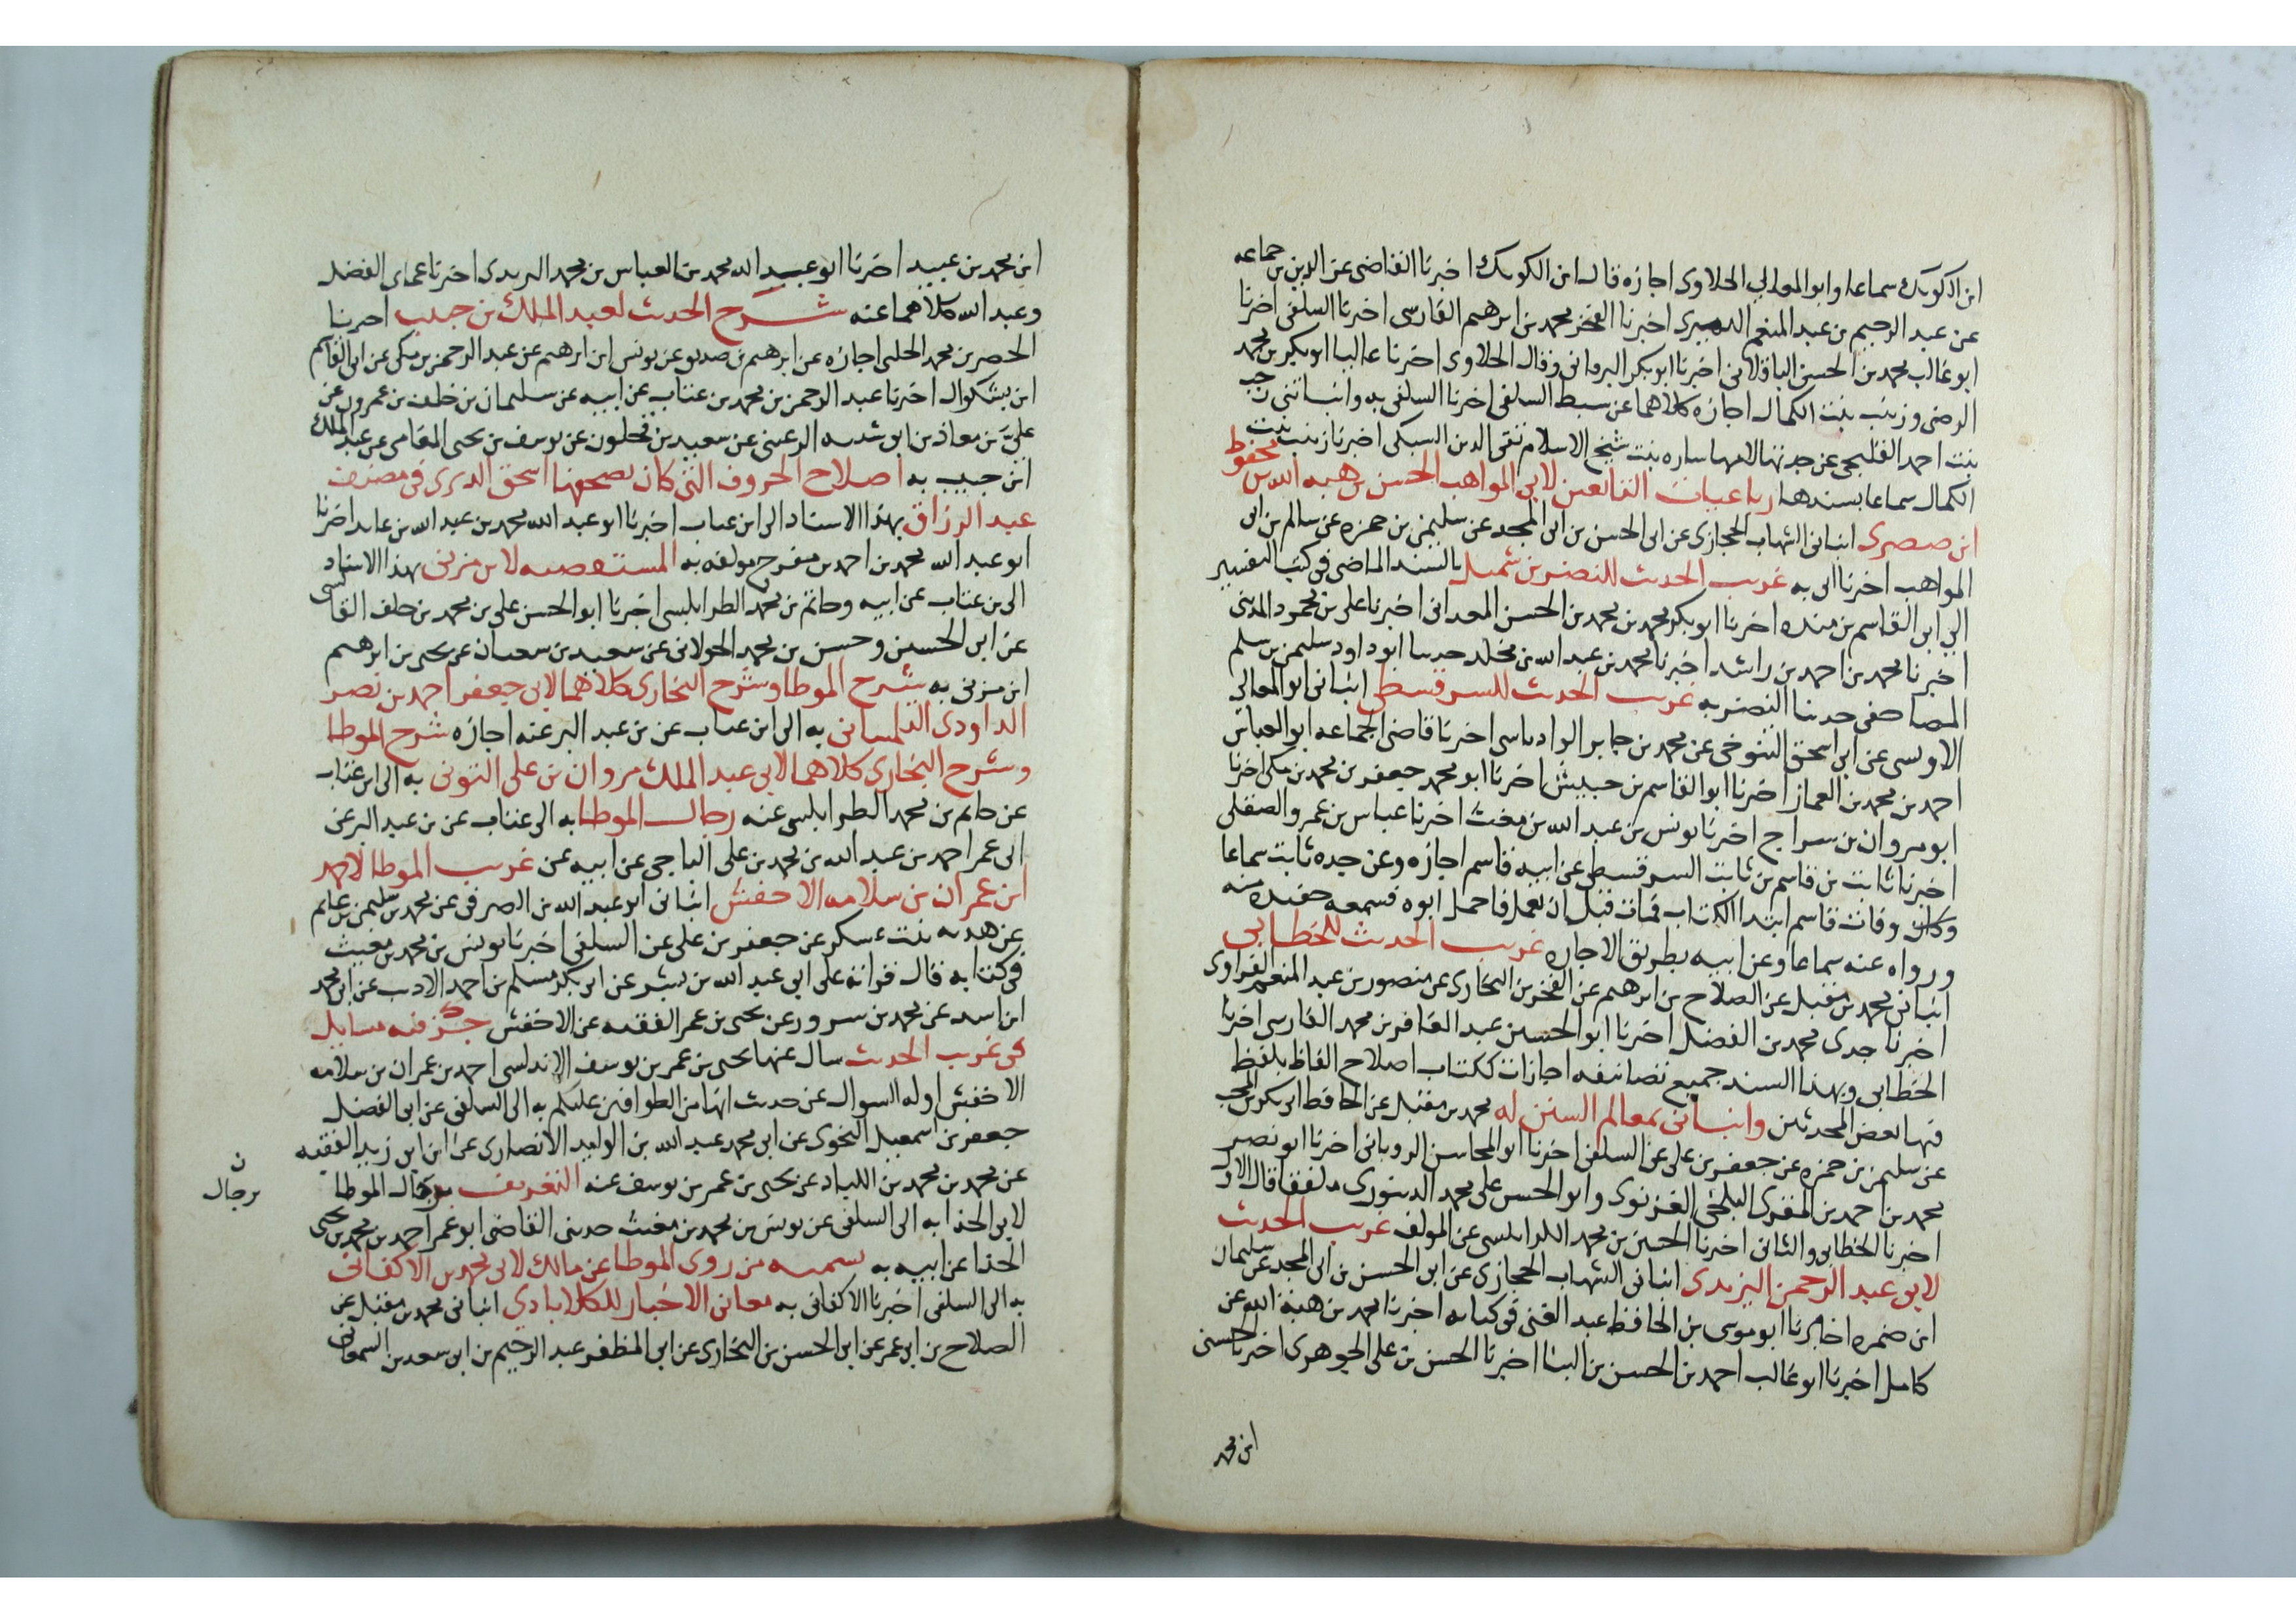 ابن الكويك سماعا وابو المعالي الحلاوى اجازه قال ابن الكويك اخبرنا القاضى عز الدين بن جماعه
عن عبد الرحيم بن عبد المنعم الدميرى اخبرنا الفخر محمد بن ابرهيم الفارسى اخبرنا السلفى اخبرنا
ابو غالب محمد بن الحسن الباقلانى اخبرنا ابو بكر البرقانى وقال الحلاوى اخبرنا عاليا ابو بكر بن محمد
الرضى وزينب بنت الكمال اجازه كلاهما عن سبط السلفى اخبرنا السلفى به وانبأتنى رجب
بنت احمد القليجى عن جدتها لامها ساره بنت شيخ الاسلام تقى الدين السبكى اخبرنا زينب بنت
الكمال سماعا بسندها رباعيات التابعين لابى المواهب الحسن بن هبه الله بن محفوظ
ابن صصرى انبانى الشهاب الحجازى عن ابى الحسن بن ابى المجد عن سليمن بن حمزه عن سالم بن ابى
المواهب اخبرنا ابى به غريب الحديث للنضر بن شميل بالسند الماضى فى كتب التفسير
الى ابى القاسم بن منده اخبرنا ابو بكر محمد بن محمد بن الحسن المعدانى اخبرنا على بن محمود المدينى
اخبرنا محمد بن احمد بن راشد اخبرنا محمد بن عبد الله بن مخلد حدثنا ابو داود سليمن بن سلم
المصاحفى حدثنا النضر به غريب الحديث للسرقسطى انبانى ابو المعالى
الاوسى عن ابى اسحق التنوخى عن محمد بن جابر الوادياشى اخبرنا قاضى الجماعه ابو العباس
احمد بن محمد بن الغماز اخبرنا ابو القاسم بن حبيش اخبرنا ابو محمد جعفر بن محمد بن مكى اخبرنا
ابو مروان بن سراج اخبرنا يونس بن عبد الله بن مغيث اخبرنا عباس بن عمرو الصقلى
اخبرنا ثابت بن قاسم بن ثابت السرقسطى عن ابيه قاسم اجازه وعن جده ثابت سماعا
وكان وفات قاسم ابتدا الكتاب فمات قبل ان يعمل فاحمل ابوه فسمعه حفيده منه
ورواه عنه سماعا وعن ابيه بطريق الاجازه غريب الحديث للخطابى
انبانى محمد بن مقبل عن الصلاح بن ابرهيم عن الفخر بن البخارى عن منصور بن عبد المنعم الفراوى
اخبرنا جدى محمد بن الفضل اخبرنا ابو الحسين عبد الغافر بن محمد الفارسى اخبرنا
الخطابى وبهذا السند جميع تصانيفه اجازات ككتاب اصلاح الفاظ بلفظ
فيها بعض المحدثين وانبانى بمعالم السنن له محمد بن مقبل عن الحافظ ابى بكر بن المحب
عن سليمن بن حمزه عن جعفر بن على عن السلفى اخبرنا ابو المحاسن الرويانى اخبرنا ابو نصر
محمد بن احمد بن المقرى البلخى الغزنوى وابو الحسن على محمد الدينورى ملفقا قال الاول
اخبرنا الخطابى والثانى اخبرنا الحسين بن محمد الطرابلسى عن المولف غريب الحديث
لابى عبد الرحمن اليزيدى انبانى الشهاب الحجازى عن ابى الحسن بن ابى المجد عن سليمان
ابن حمزه اخبرنا ابو موسى بن الحافظ عبد الغنى فى كتابه اخبرنا محمد بن هبة الله عن
كامل اخبرنا ابو غالب احمد بن الحسن بن البنا اخبرنا الحسن بن على الجوهرى اخبرنا الحسنى
ابن محمد
ابن محمد بن عبيد اخبرنا ابو عبيد الله محمد بن العباس بن محمد اليزيدى اخبرنا عماى الفضل
وعبد الله كلاهما عنه شرح الحديث لعبد الملك بن حبيب اخبرنا
الخضر بن محمد الحلبى اجازه عن ابرهيم بن صديق عن يونس ابن ابرهيم عن عبد الرحمن بن مكى عن ابى القاسم
ابن بشكوال اخبرنا عبد الرحمن بن محمد بن عتاب عن ابيه عن سليمان بن خلف بن عمرون عن
على بن معاذ بن ابى شيبه الرعينى عن سعيد بن فحلون عن يوسف بن يحيى المغامى عن عبد الملك
ابن حبيب به اصلاح الحروف التى كان يصحفها اسحق الدبرى فى مصنف
عبد الرزاق بهذا الاسناد الى ابن عتاب اخبرنا ابو عبد الله محمد بن عبد الله بن عابد اخبرنا
ابو عبد الله محمد بن احمد بن مفرج مولفه به المستقصيه لابن مزين بهذا الاسناد
الى بن عتاب عن ابيه وحاتم بن محمد الطرابلسى اخبرنا ابو الحسن على بن محمد بن خلف القابسى
عن ابى الحسين وحسن بن محمد الخولانى عن سعيد بن شعبان عن يحيى بن ابرهيم
ابن مزين به شرح الموطا وشرح البخارى كلاهما لابى جعفر احمد بن نصر
الداودى التلمسانى به الى ابن عتاب عن بن عبد البر عنه اجازه شرح الموطا
وشرح البخارى كلاهما لابى عبد الملك مروان بن على البونى به الى ابن عتاب
عن حاتم بن محمد الطرابلسى عنه رجال الموطا به الى عتاب عن بن عبد البر عن
ابى عمر احمد بن عبد الله بن محمد بن على الباجى عن ابيه عن غريب الموطا لاحمد
ابن عمران بن سلامه الاخفش انبانى ابو عبد الله بن الصرفى عن محمد بن سليمن بن غانم
عن هديه بنت عسكر عن جعفر بن على عن السلفى اخبرنا يونس بن محمد بن مغيث
فى كتابه قال قراته على ابى عبد الله بن بشر عن ابى بكر مسلم بن احمد الاديب عن ابى محمد
ابن اسد عن محمد بن سرور عن يحيى بن عمر الفقيه عن الاخفش جزء فيه مسايل
فى غريب الحديث سال عنها يحيى بن عمر بن يوسف الاندلسى احمد بن عمران بن سلامه
الاخفش اوله السوال عن حديث انها من الطوافين عليكم به الى السلفى عن ابى الفضل
جعفر بن اسمعيل النحوى عن ابى محمد عبد الله بن الوليد الانصارى عن ابن ابى زيد الفقيه
عن محمد بن محمد بن اللباد عن يحيى بن عمر بن يوسف عنه التعريف برجال الموطا
ن
برجال
لابى الحذا به الى السلفى عن يونس بن محمد بن مغيث حدثنى القاضى ابو عمر احمد بن محمد بن يحيى
الحذا عن ابيه به تسميه من روى الموطا عن مالك لابى محمد بن الاكفانى
به الى السلفى اخبرنا الاكفانى به معانى الاخبار للكلاباذى انبانى محمد بن مقبل عن
الصلاح بن ابى عمر عن ابى الحسن بن البخارى عن ابى المظفر عبد الرحيم بن ابى سعد بن السمعانى